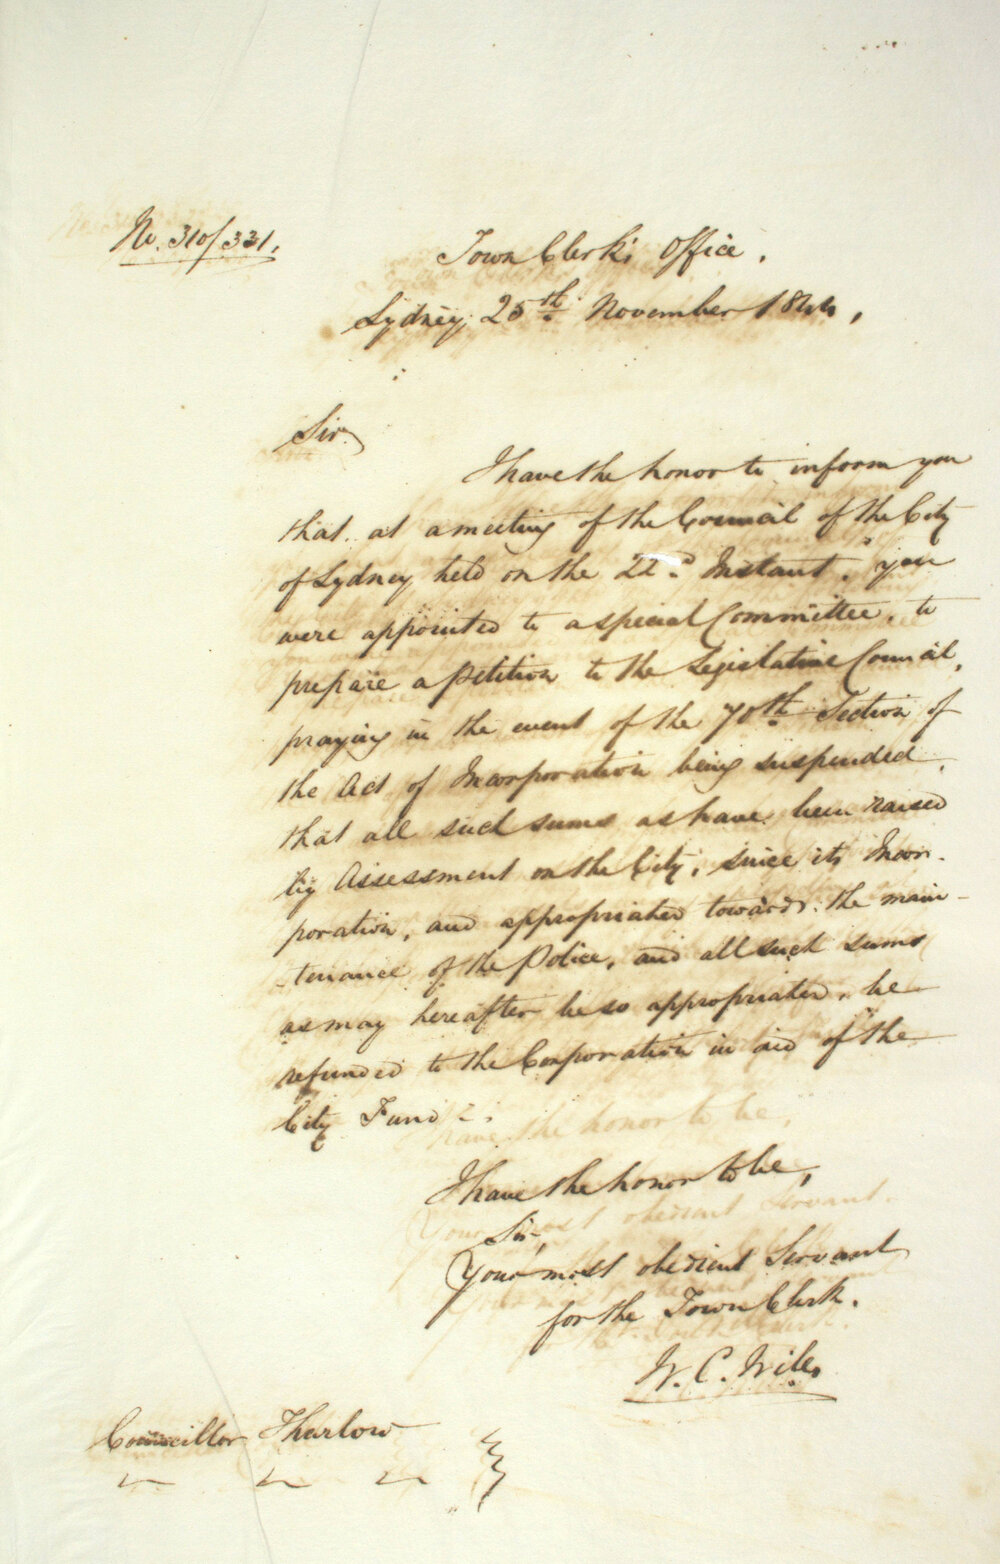 No. 310/331.
Town Clerk's Office.
Sydney, 25th November 1844,
Sir,
I have the honor to inform you
that at a meeting of the Council of the City
of Sydney held on the 22d. Instant, you
were appointed to a special Committee, to
prepare a petition to the Legislative Council,
praying in the event of the 70th Section of
the Act of Incorporation being suspended,
that all such sums as have been raised
by Assessment on the City, since its Incor-
poration, and appropriated towards the main-
-tenance of the Police, and all such sums
as may hereafter be so appropriated, be
refunded to the Corporation in aid of the
City Fund.
I have the honor to be,
Sir,
Your most obedient Servant
for the Town Clerk.
W. C. Wills
Councillor Thurlow